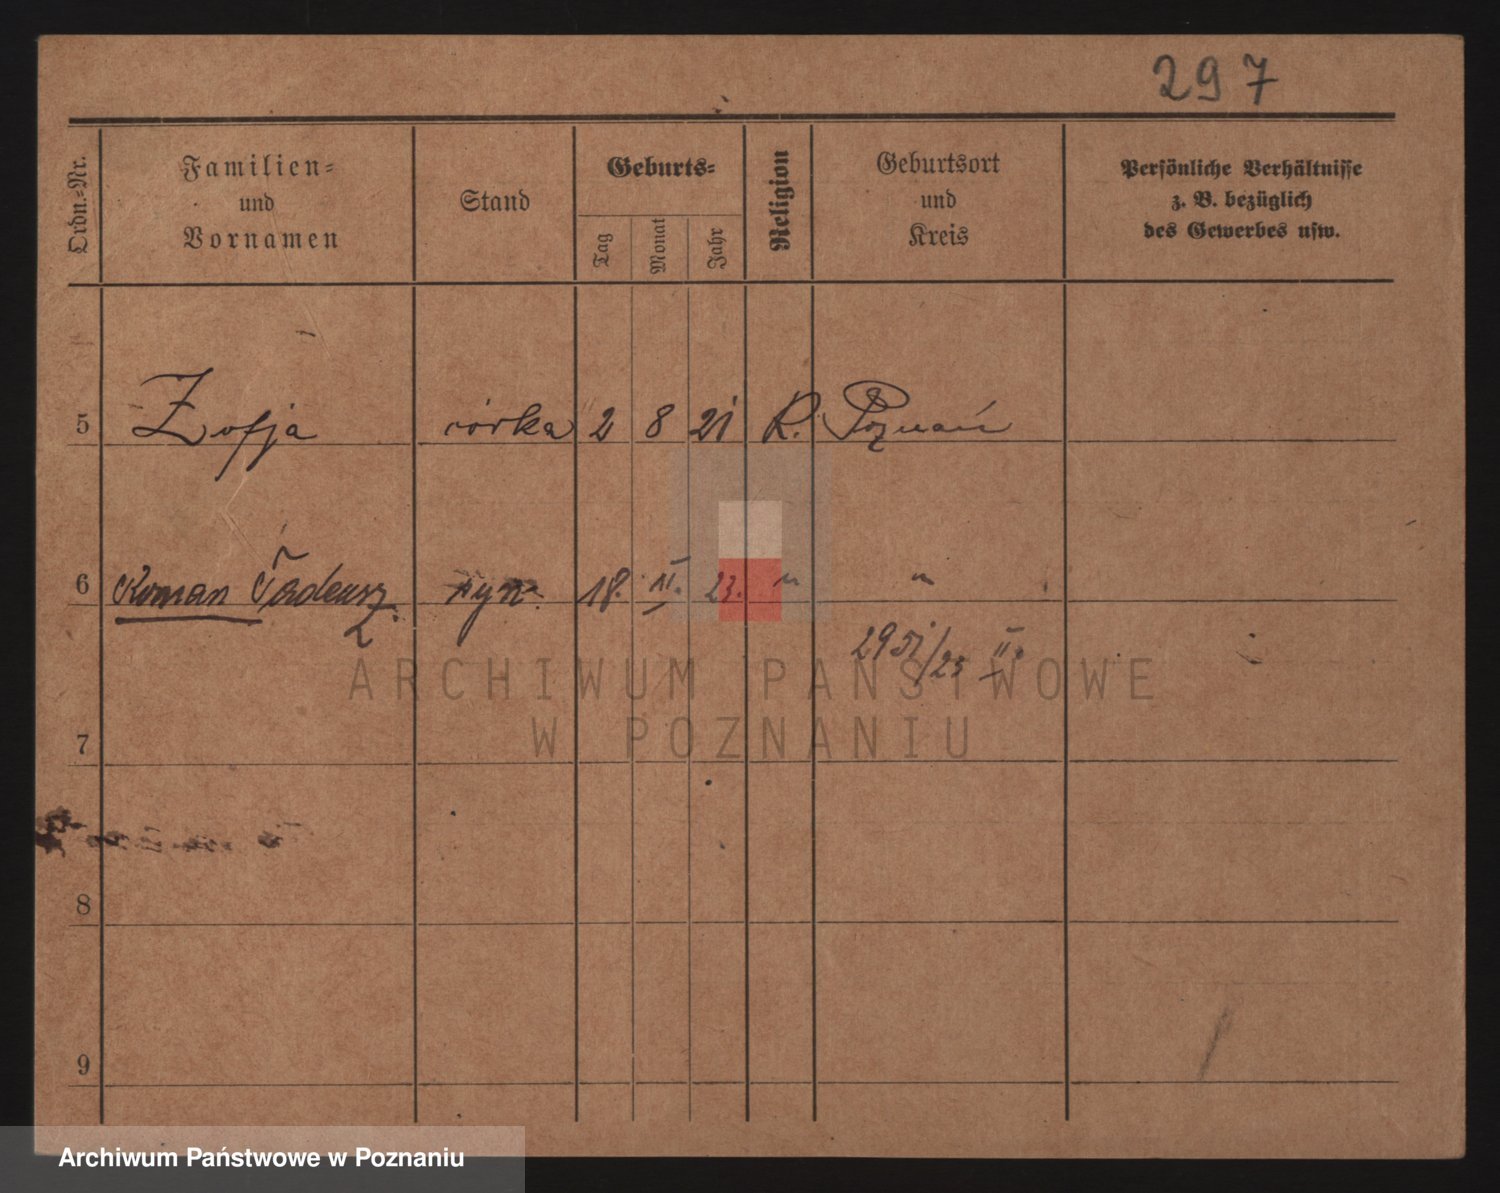 297
Ordn.-Nr.
Familien-
und
Vornamen
Stand
Geburts-
Tag
Monat
Jahr
Religion
Geburtsort
und
Kreis
Persönliche Verhältnisse
z. B. bezüglich
des Gewerbes usw.
5 Zofja córka 2 8 21 R. Poznań
6 Roman Tadeusz syn 18. II. 23. " "
2951/23 II.
7
8
9
ARCHIWUM PAŃSTWOWE
W POZNANIU
Archiwum Państwowe w Poznaniu